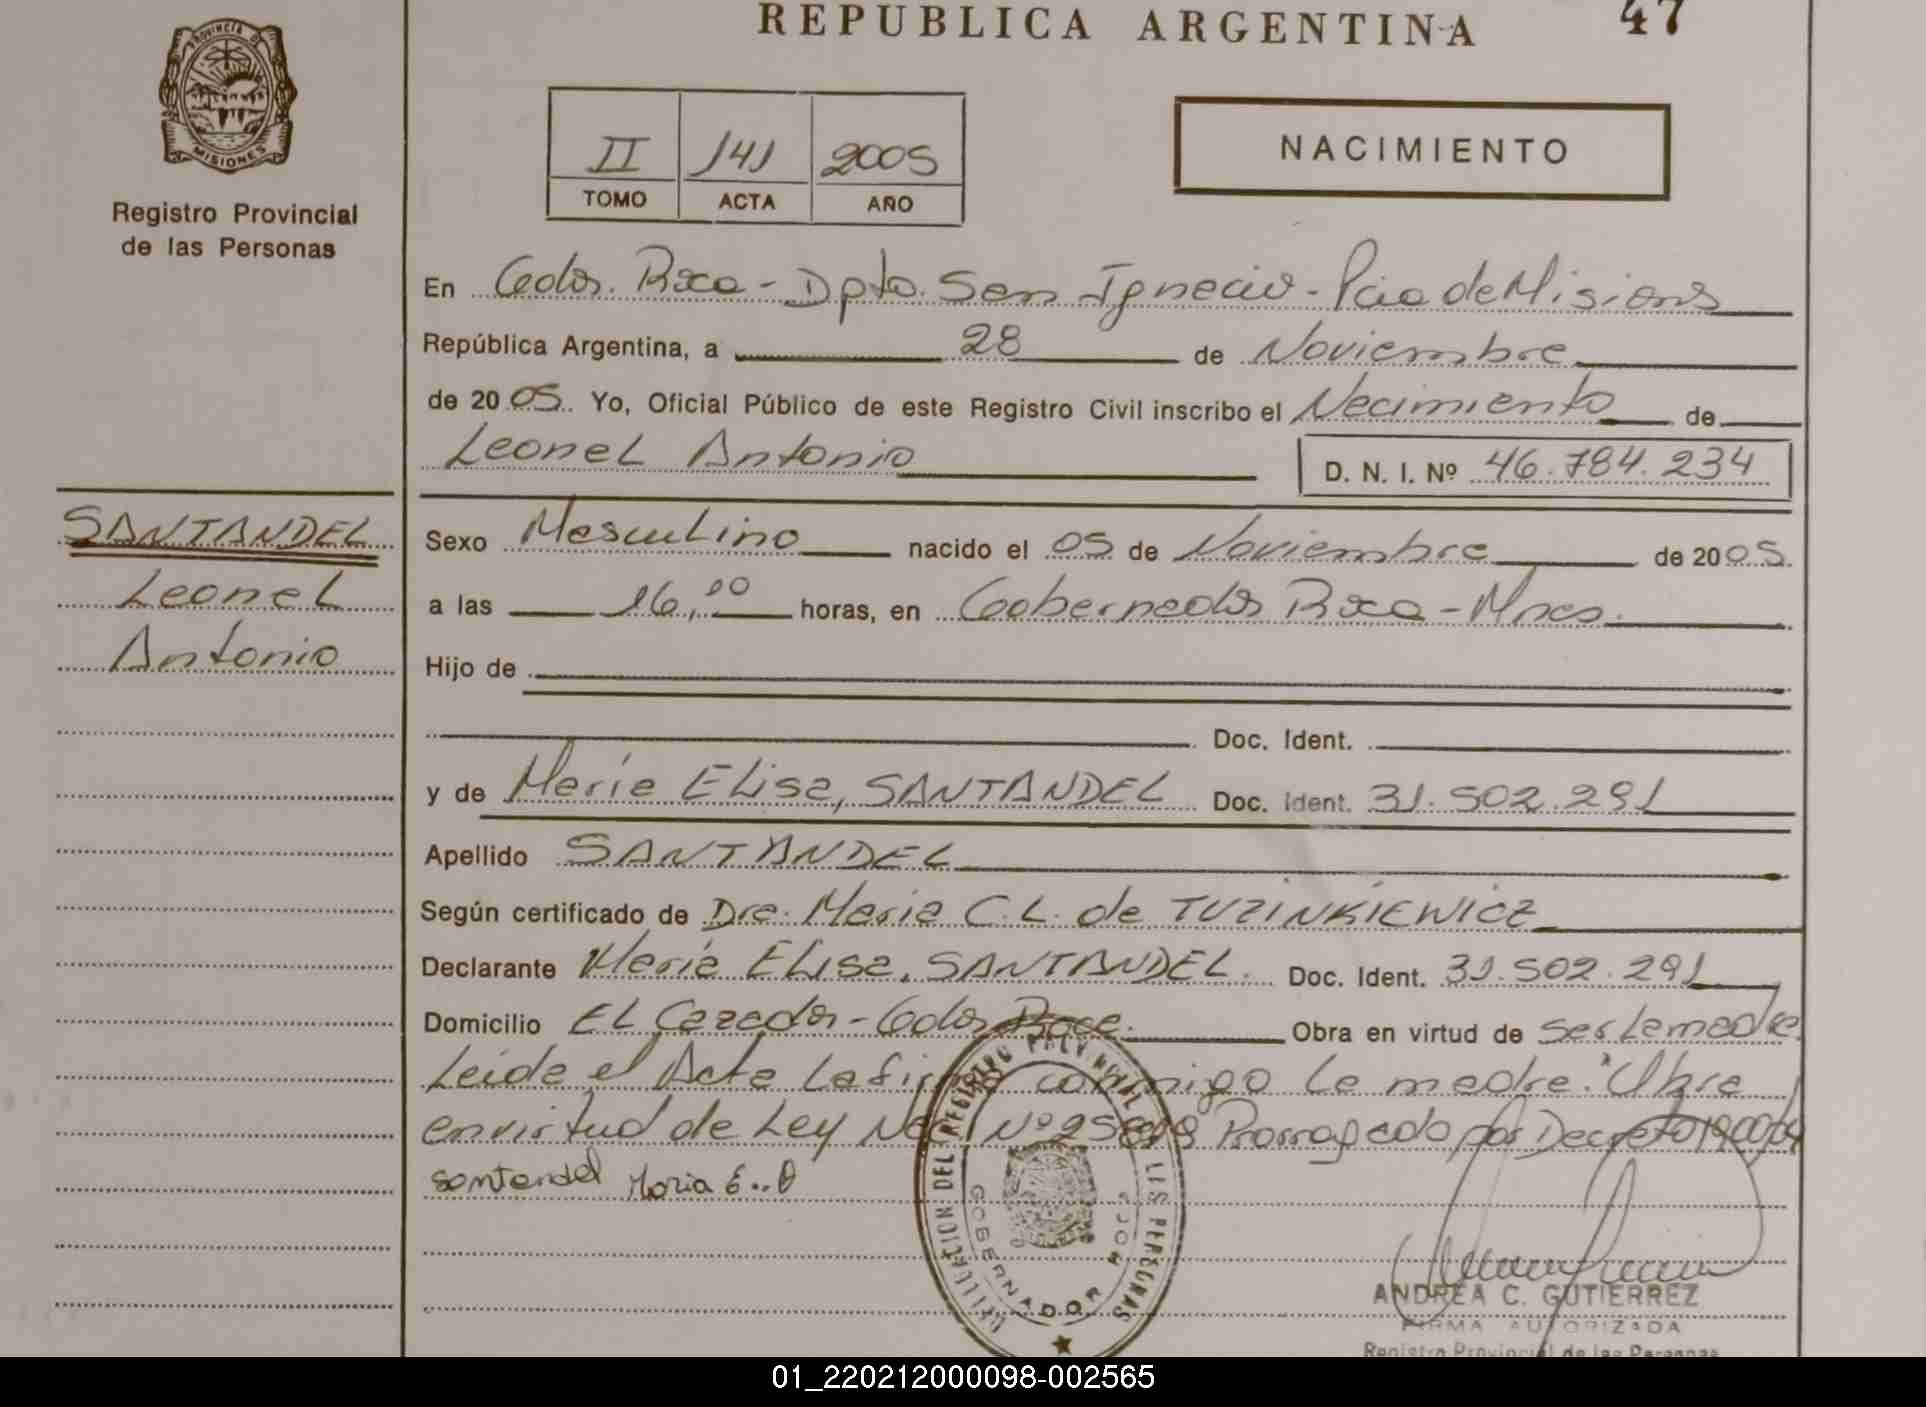 REPUBLICA ARGENTINA 47
PROVINCIA DE
MISIONES
Registro Provincial
de las Personas
II 141 2005
TOMO ACTA AÑO
NACIMIENTO
En Gdor. Roca - Dpto. San Ignacio - Pcia de Misiones
República Argentina, a 28 de Noviembre
de 2005. Yo, Oficial Público de este Registro Civil inscribo el Nacimiento de
Leonel Antonio D. N. I. Nº 46.784.234
SANTANDEL
Leonel
Antonio
Sexo Masculino nacido el 05 de Noviembre de 2005.
a las 16,00 horas, en Gobernador Roca - Mnes.
Hijo de
Doc. Ident.
y de María Elisa, SANTANDEL Doc. Ident. 31.502.291
Apellido SANTANDEL
Según certificado de Dra. María C. L. de TUZINKIEWICZ
Declarante María Elisa, SANTANDEL. Doc. Ident. 31.502.291
Domicilio EL Cazador - Gdor Roca. Obra en virtud de ser la madre.
Leída el Acta la firma conmigo la madre. "Obra
en virtud de Ley Nº 25 Prorrogado por Decreto 1900/04
santandel Maria E.
DEL REGISTRO PROVINCIAL DE LAS PERSONAS
GOBERNADOR ROCA
ANDREA C. GUTIERREZ
FIRMA AUTORIZADA
Registro Provincial de las Personas
01_220212000098-002565